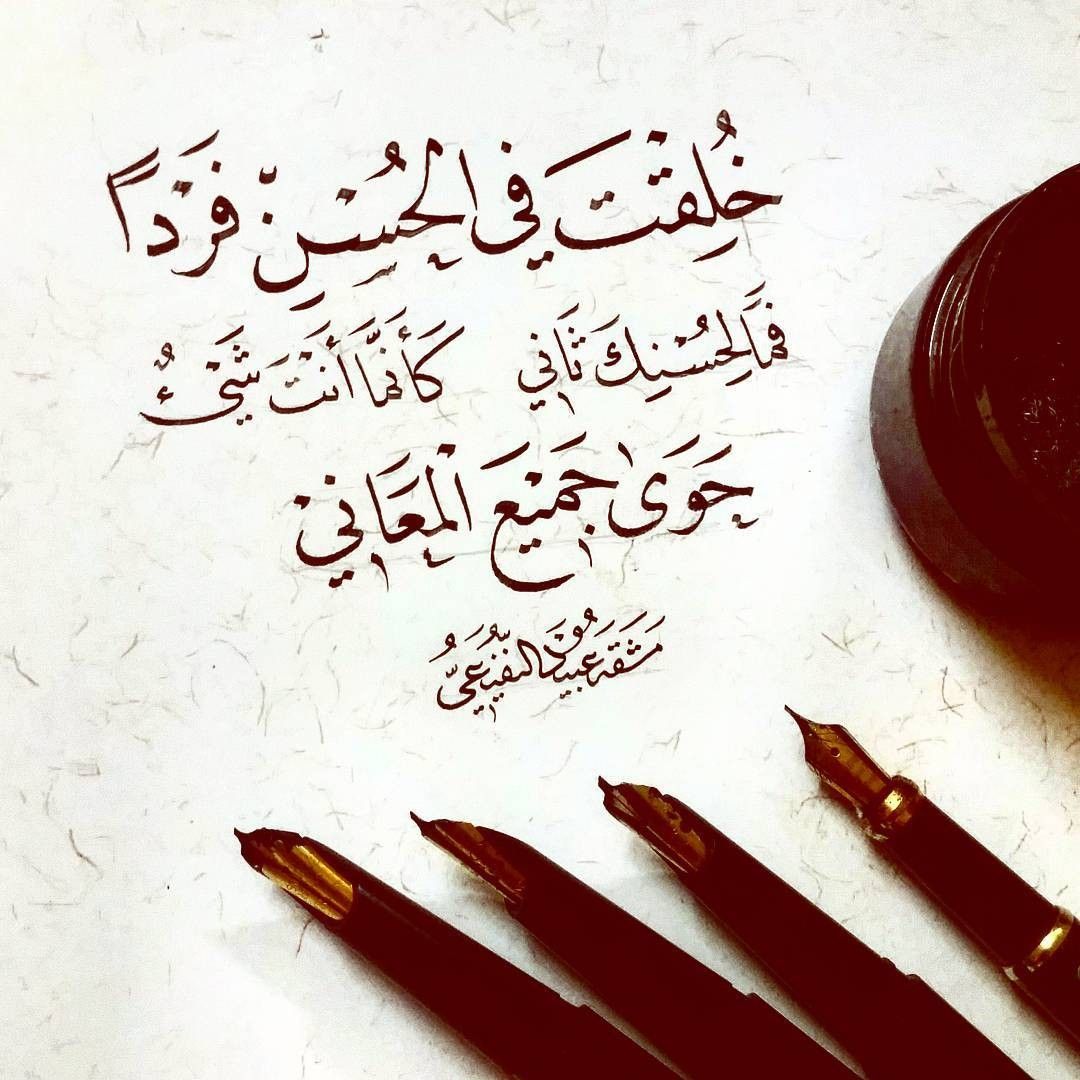 خُلِقْتَ في الحُسْنِ فَرْداً
فَمَا لِحُسْنِكَ ثَاني كَأَنَّمَا أَنْتَ شَيْءٌ
حَوَى جَمِيْعَ الْمَعَانِيْ
مَشَقَهُ عَبِيدُ النفيعيُّ